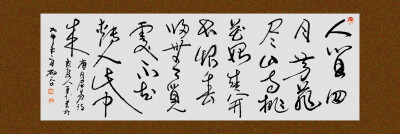 人间四
月芳菲
尽山寺桃
花始盛开
长恨春
归无觅
处不知
转入此中
来